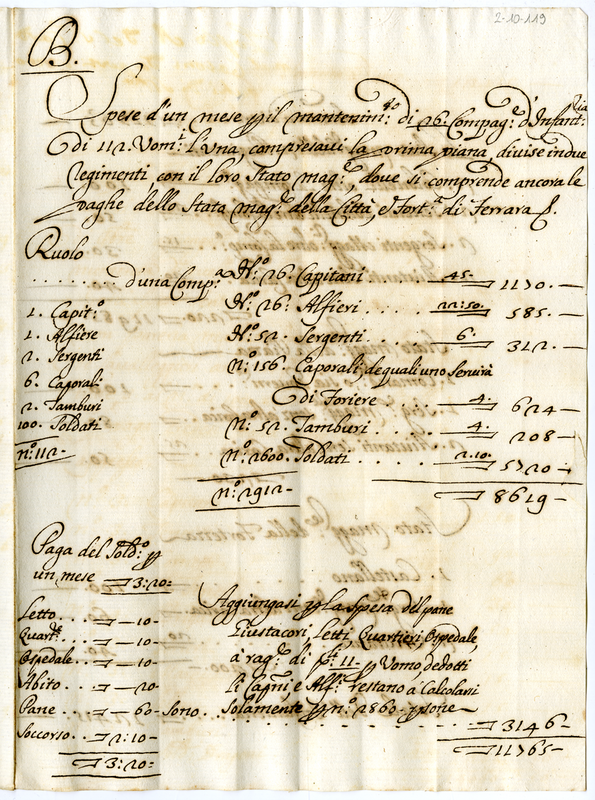 2-10-119
B.
Spese d'un mese p il mantenim:to di 26. Compag:e d'Infant:ria
di 112. Uom:i l'una, compresavi la prima piana, divise in due
Regimenti, con il loro Stato mag:e, dove si comprende ancora le
paghe dello Stato mag:e della Città, e Fort:a di Ferrara
Ruolo
. . . . . . . d'una Comp:a
1. Capit:o
1. Alfiere
2. Sergenti
6. Caporali
2. Tamburi
100. Soldati
n:o 112-
N:o 26. Capitani 45- 1170.—
N:o 26: Alfieri . . . . 22:50. 585.—
N:o 52. Sergenti . . . . 6. 312.—
n:o 156. Caporali, de quali uno servirà
di Foriere . . . . 4. 624—
n:o 52. Tamburi . . . . 4. 208—
n:o 2600. Soldati . . . . 2.10- 5720—
n:o 2912- 8619—
Paga del Sold:o p
un mese 3:20=
Letto . . . —10-
Quart:e . . —10-
Ospedale . . —10-
Abito . . . —20-
Pane . . . —60- sono . .
Soccorso . . 2:10-
3:20=
Aggiungasi p la spesa del pane
Giustacori, Letti, Quartieri, Ospedale,
à rag:e di 11- p Uomo, dedotti
li Cap:ni, e Alf:i restano à Calcolarsi
Solamente p n:o 2860- psone—
. . . . . . . . 3146—
11765—